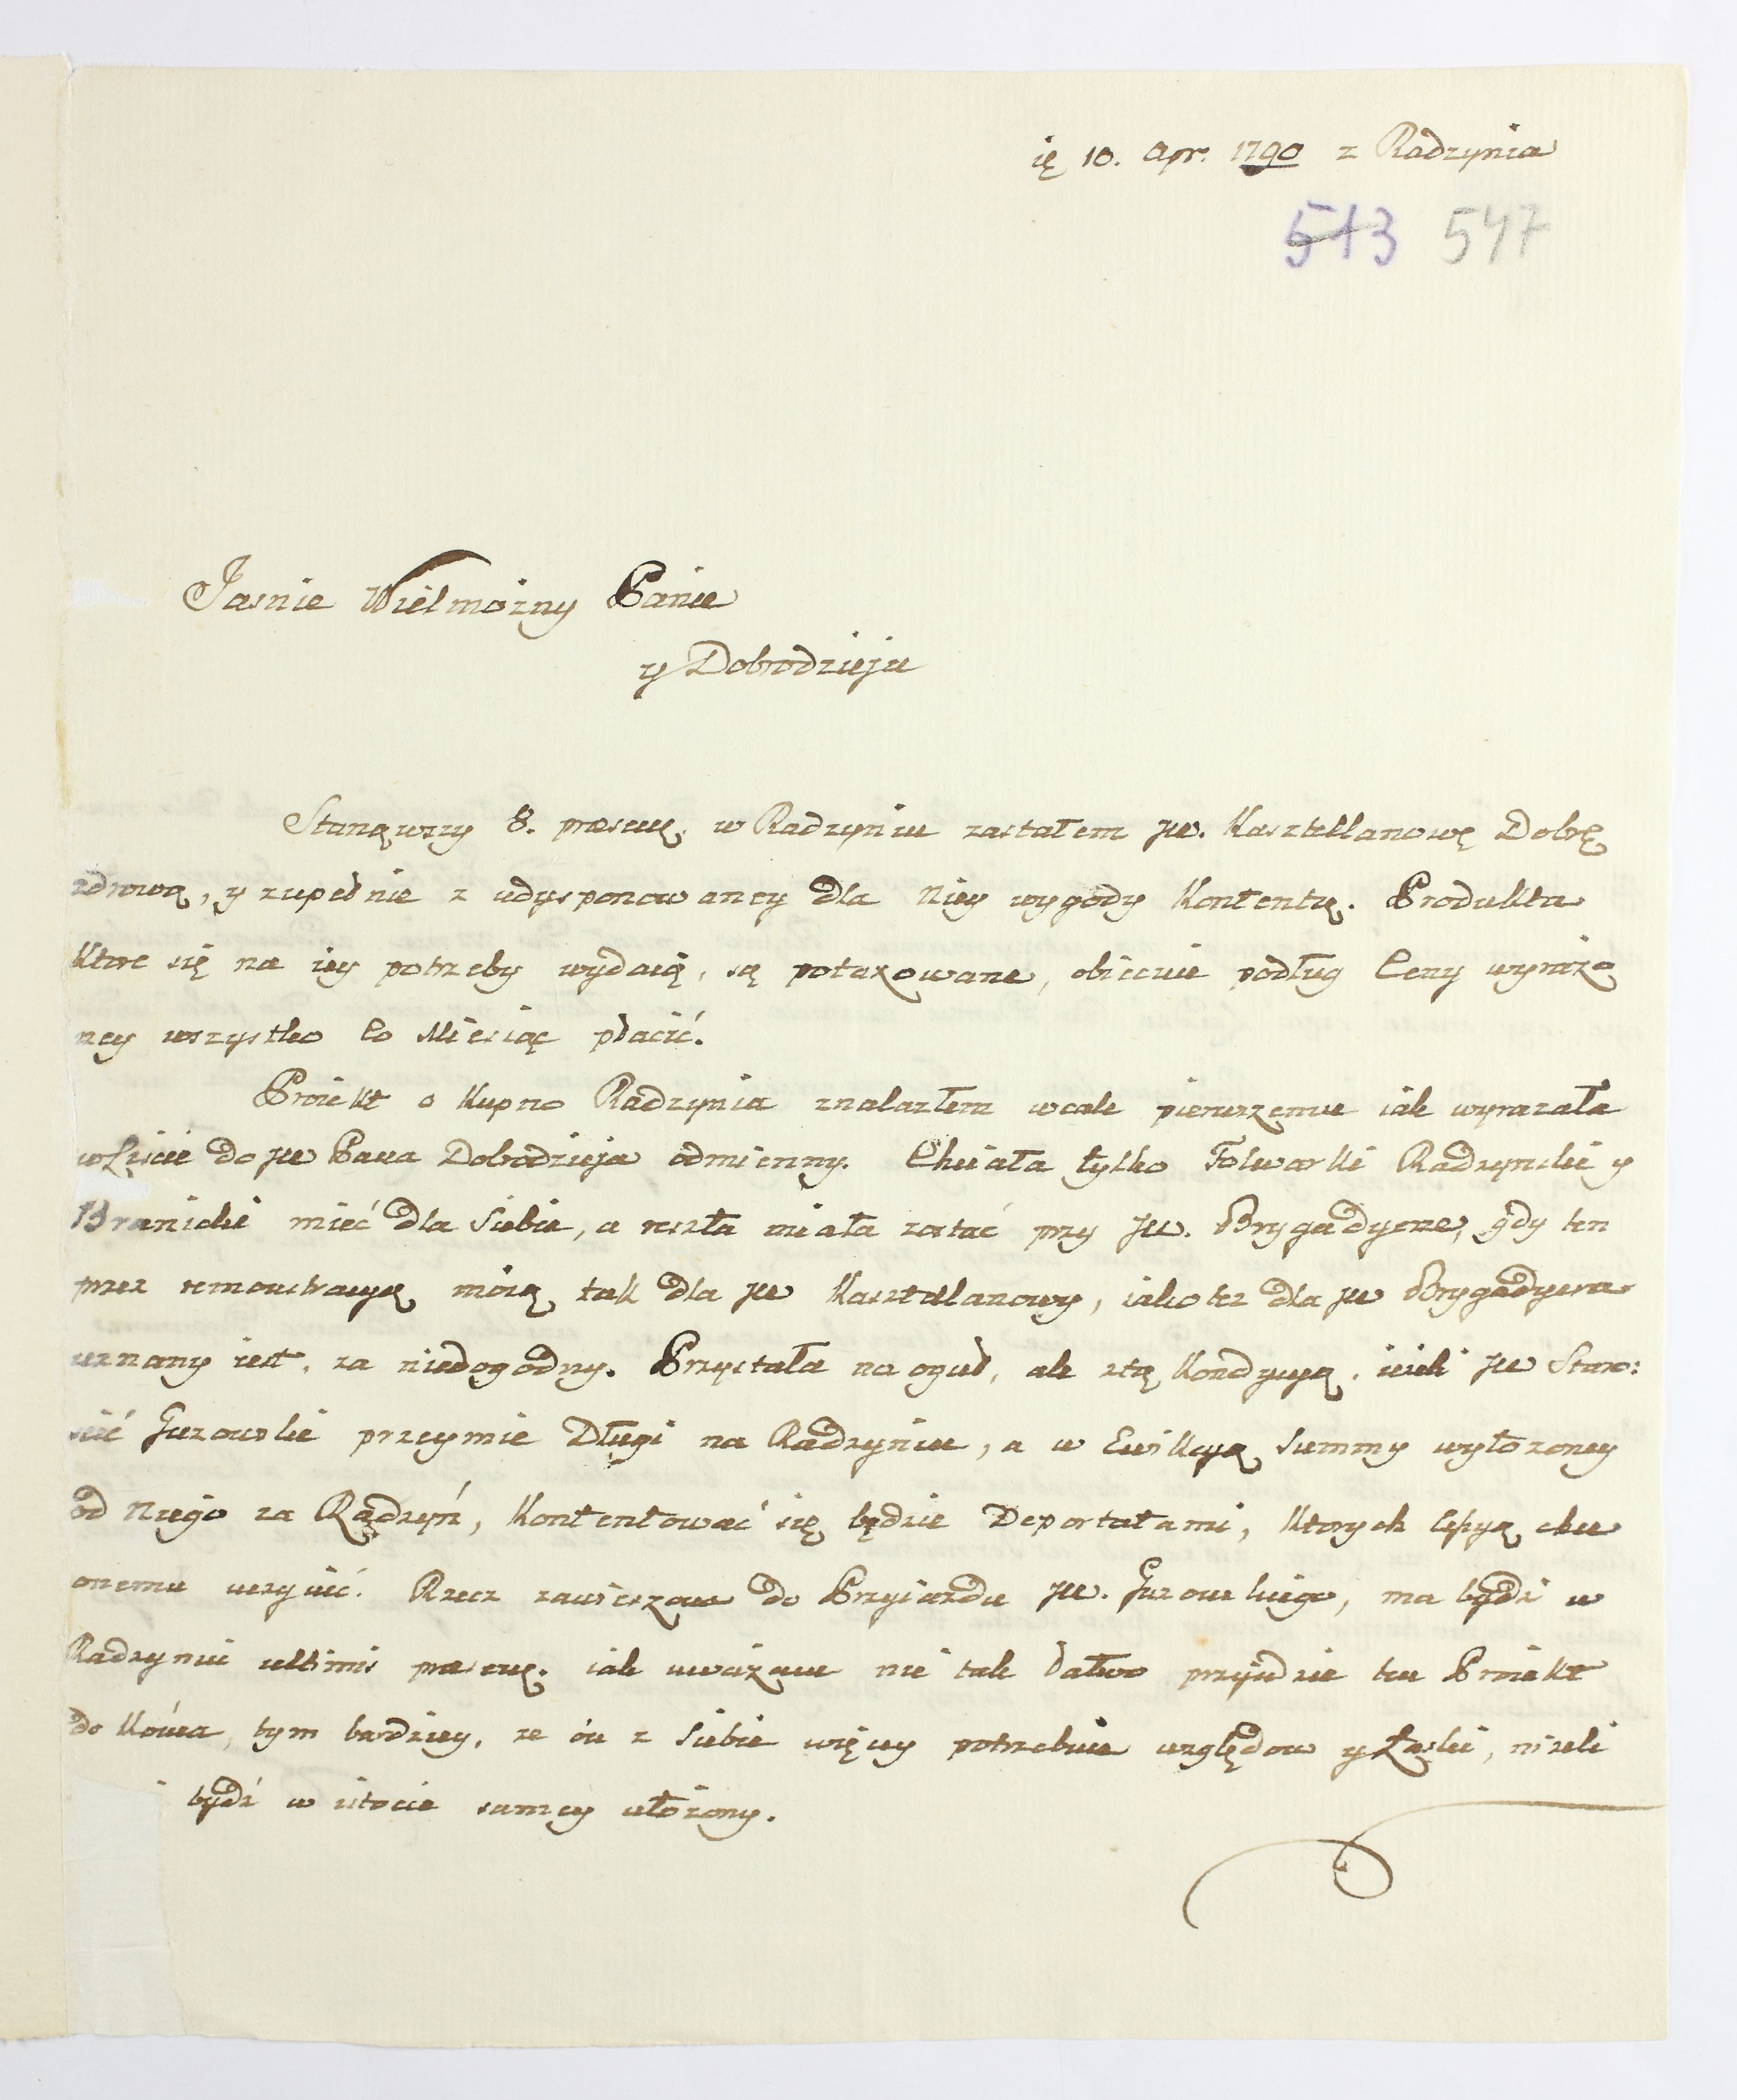 ię 10. Apr. 1790 z Radzynia
513 547
Jasnie Wielmożny Panie
y Dobrodzieju
Stanąwszy 8. praesen. w Radzyniu zastałem JW. Kasztellanowę Dobrę
zdrową, y zupełnie z udysponowaney dla Niey wygody Kontentę. Produkta
Ktore się na iey potrzeby wydaią, są potaxowane, obiecuie podług Ceny wyrażo
ney wszystko Co Miesiąc płacić.
Proiekt o Kupno Radzynia znalazłem wcale pierwszemu iak wyrazała
w Liscie do JW Pana Dobrodzieja odmienny. Chciała tylko Folwarki Radzynskie y
Branickie mieć dla siebie, a reszta miała zostać przy JW. Brygadyerze, gdy ten
przez remonstracyą moią tak dla JW Kasztelanowy, iako tez dla JW Brygadyera
uznany iest, za niedogodny. Przystała na oguł, ale z tą Kondycyą, iezeli JW Staro:
scić Gurowski przeymie Długi na Radzyniu, a w Ewikcyą summy wyłozoney
od Niego za Radzyń, Kontentować się będzie Deportatami, Ktorych cessyą chce
onemu uczynić. Rzecz zawieszona do Przyiazdu JW. Gurowskiego, ma bydz w
Radzyniu ultimis praesen. iak uwazam nie tak łatwo przyidzie ten Proiekt
do Końca, tym bardziey, ze on z siebie więcy potrzebuie względow y Łaski, nizeli
bydź w istocie samey ułożony.